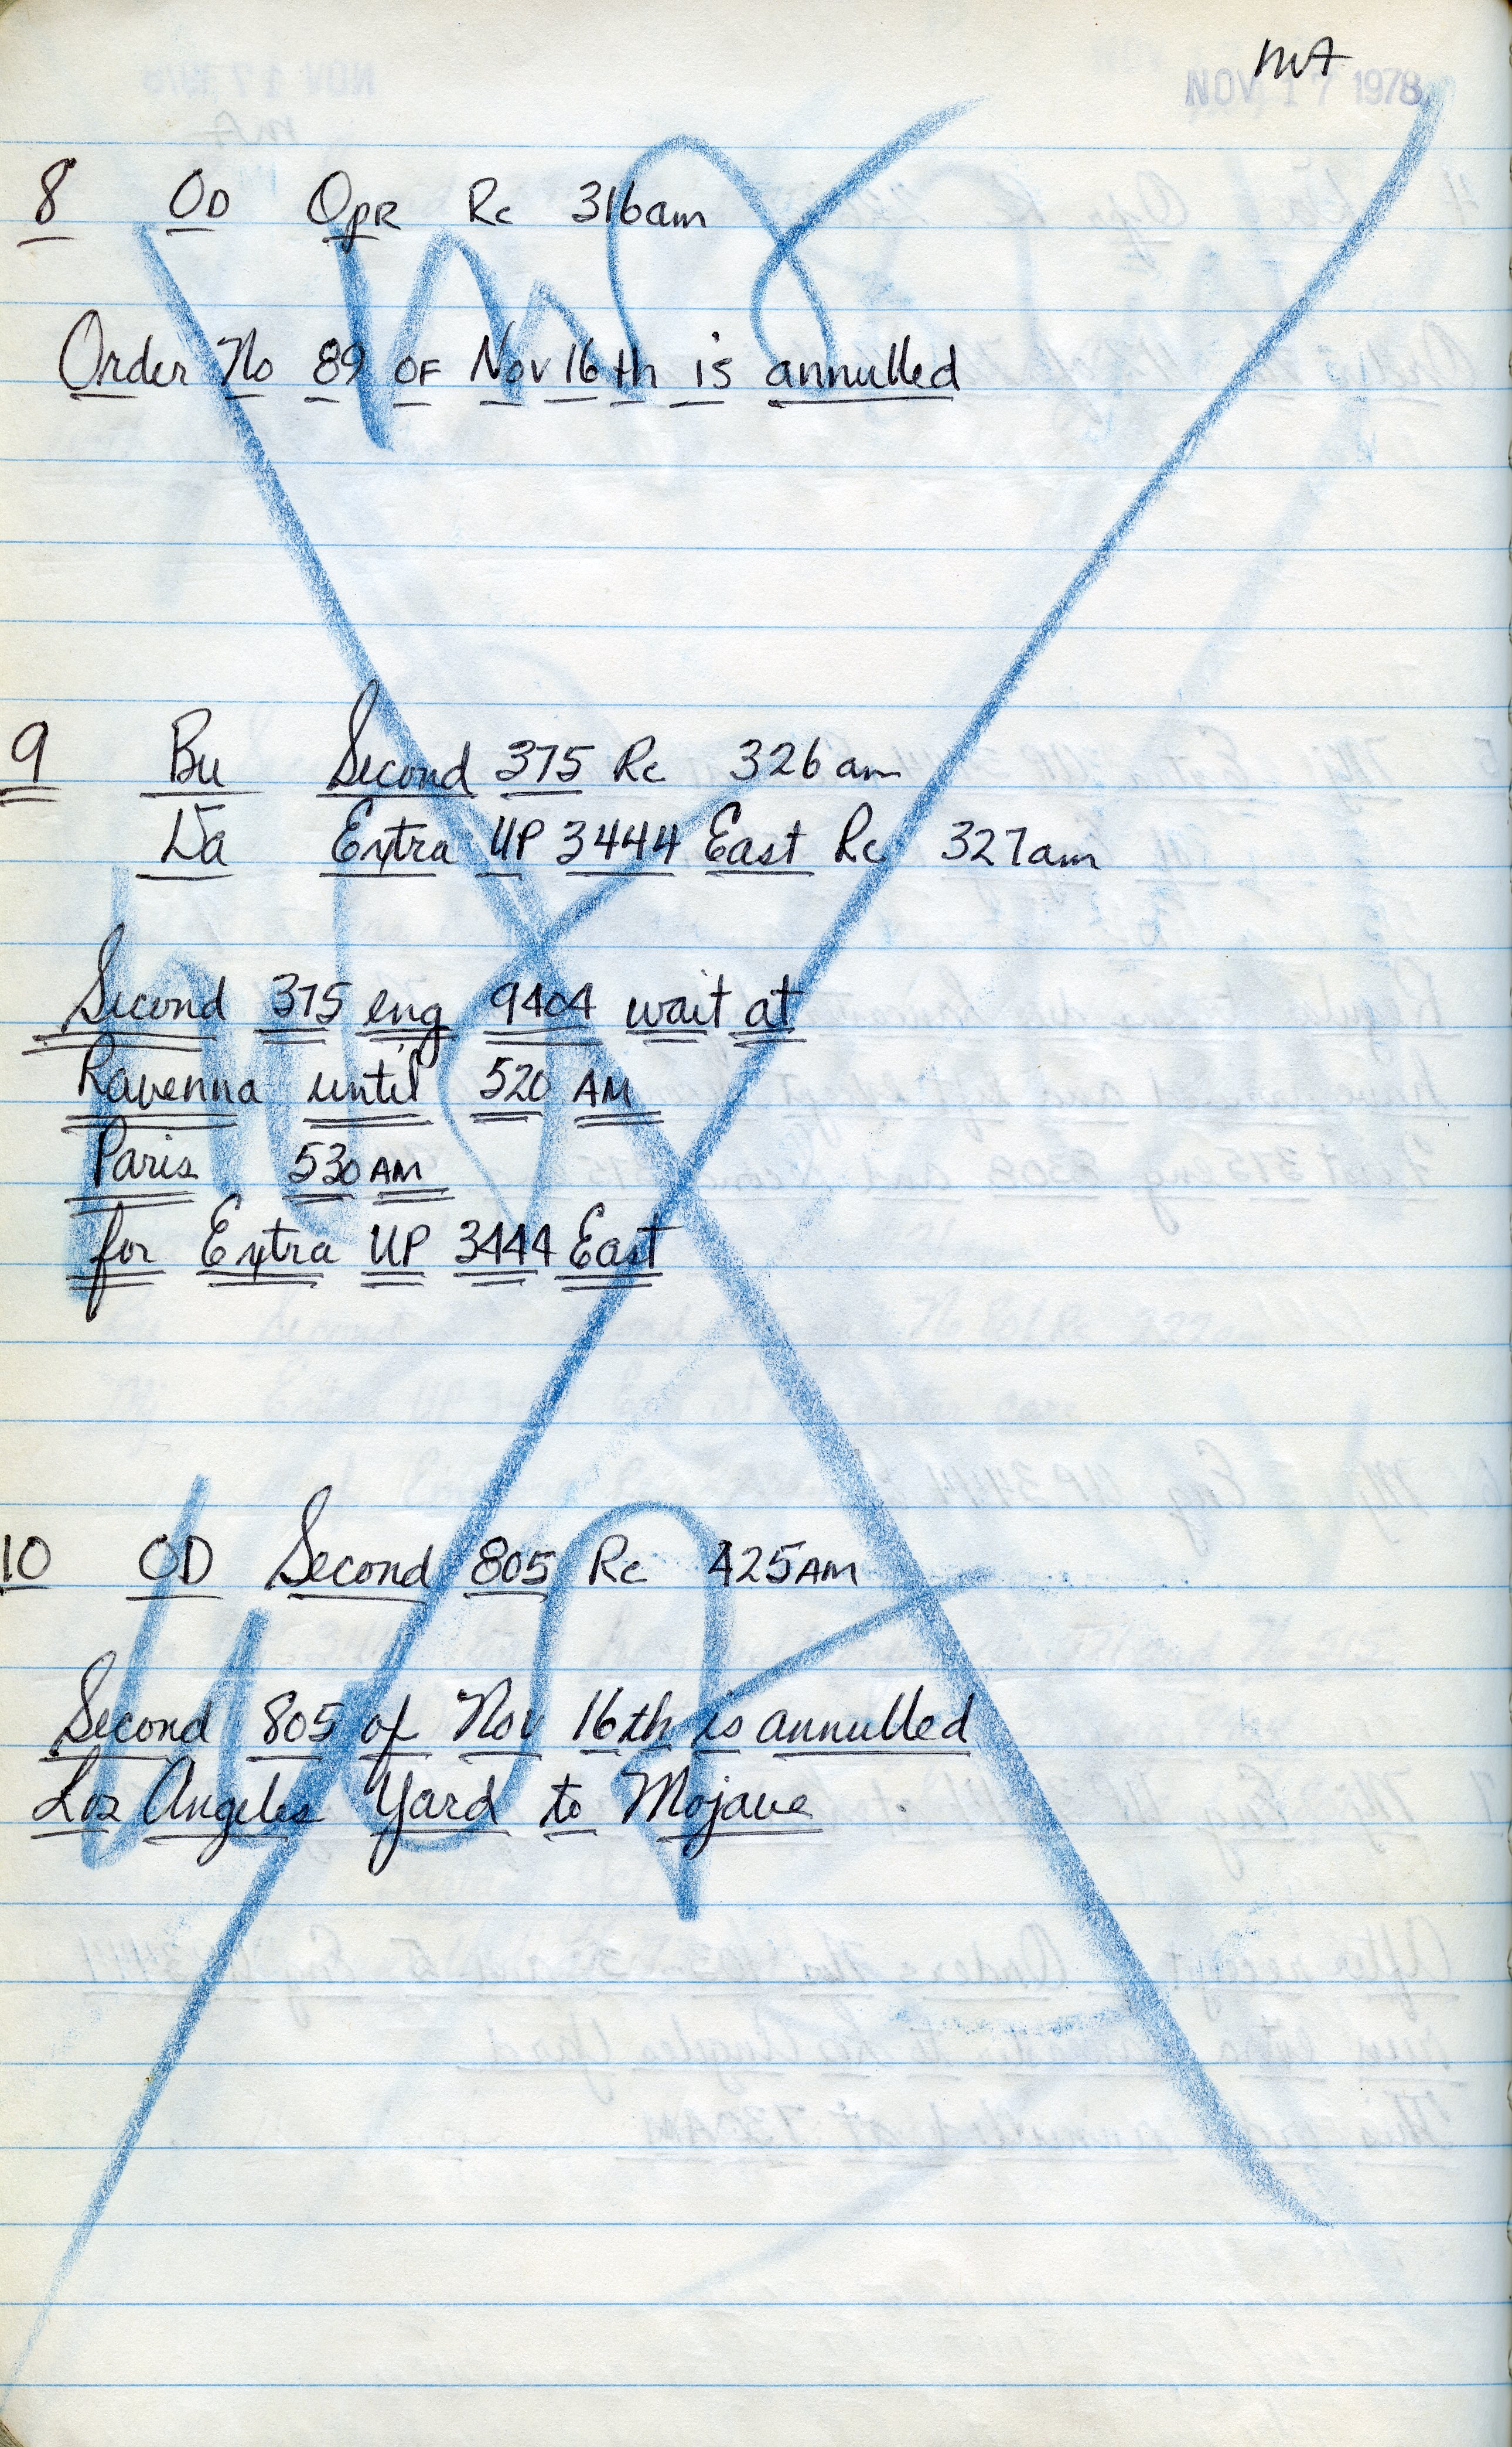 mA
NOV 17 1978
8 OD Opr Rc 316am
Order No 89 OF Nov 16th is annulled
9 Bu Second 375 Rc 326am
Da Extra UP 3444 East Rc 327am
Second 375 eng 9404 wait at
Ravenna until 520 AM
Paris 530 AM
for Extra UP 3444 East
10 OD Second 805 Rc 425AM
Second 805 of Nov 16th is annulled
Los Angeles Yard to Mojave